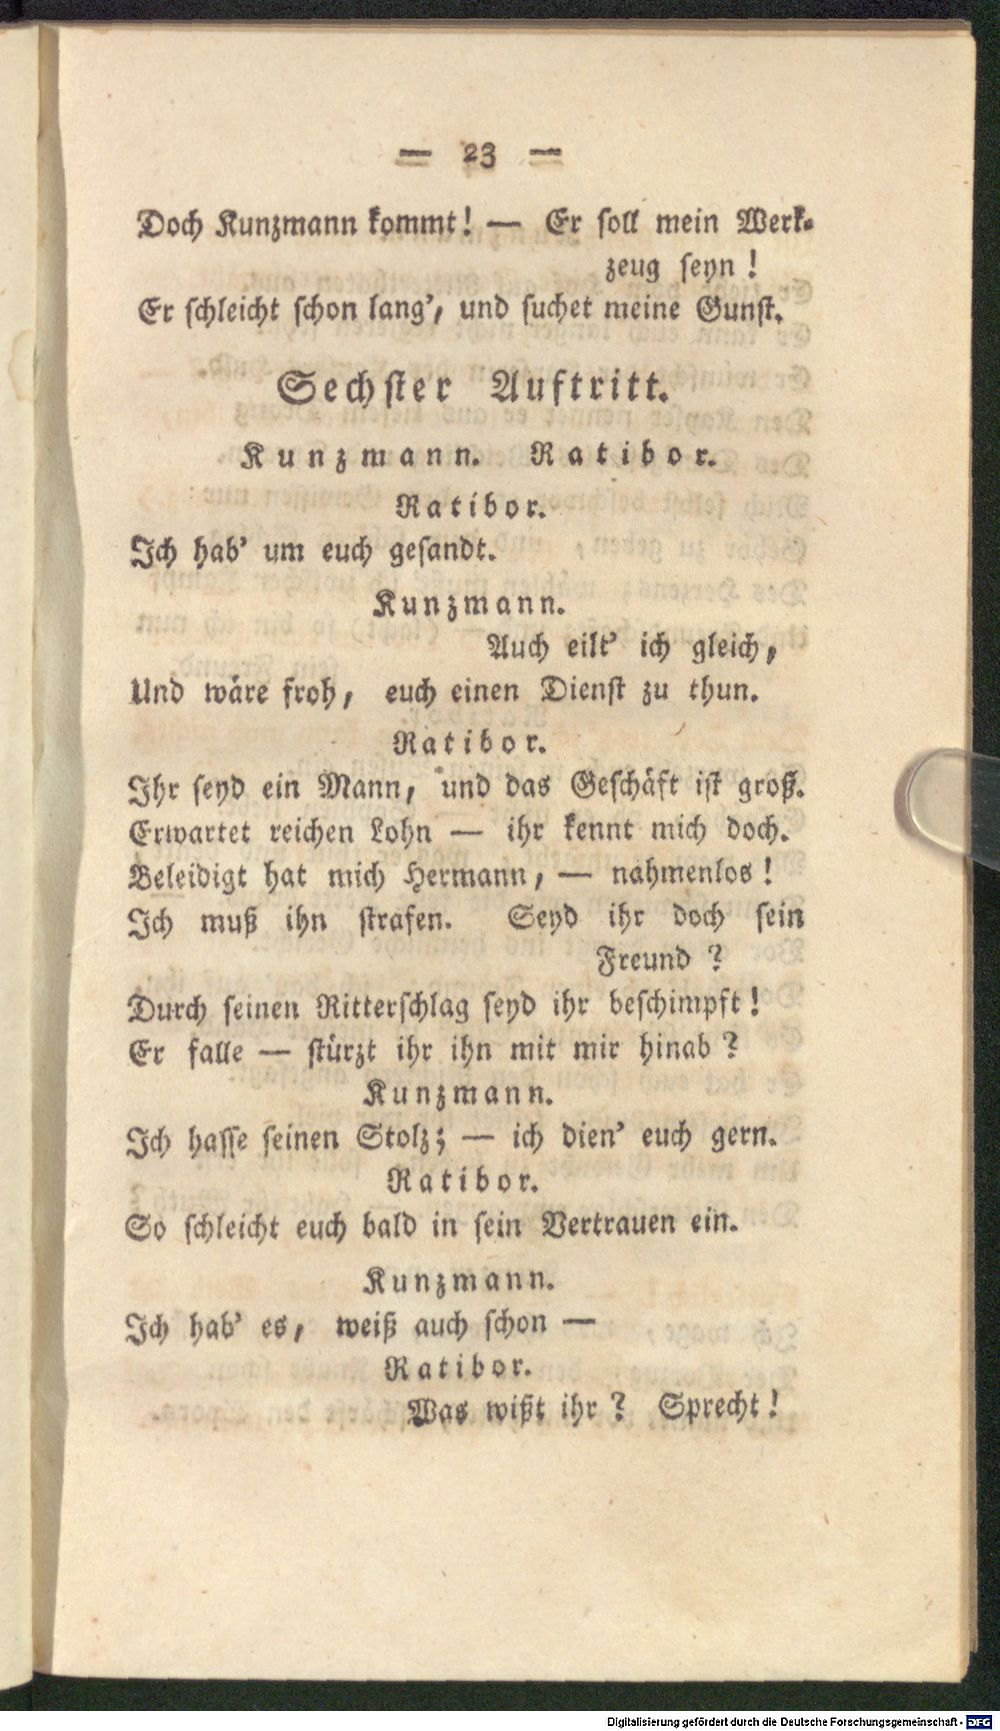 — 23 —
Doch Kunzmann kommt! — Er soll mein Werk-
zeug seyn!
Er schleicht schon lang', und suchet meine Gunst.
Sechster Auftritt.
Kunzmann. Ratibor.
Ratibor.
Ich hab' um euch gesandt.
Kunzmann.
Auch eilt' ich gleich,
Und wäre froh, euch einen Dienst zu thun.
Ratibor.
Ihr seyd ein Mann, und das Geschäft ist groß.
Erwartet reichen Lohn — ihr kennt mich doch.
Beleidigt hat mich Hermann, — nahmenlos!
Ich muß ihn strafen. Seyd ihr doch sein
Freund?
Durch seinen Ritterschlag seyd ihr beschimpft!
Er falle — stürzt ihr ihn mit mir hinab?
Kunzmann.
Ich hasse seinen Stolz; — ich dien' euch gern.
Ratibor.
So schleicht euch bald in sein Vertrauen ein.
Kunzmann.
Ich hab' es, weiß auch schon —
Ratibor.
Was wißt ihr? Sprecht!
Digitalisierung gefördert durch die Deutsche Forschungsgemeinschaft - DFG